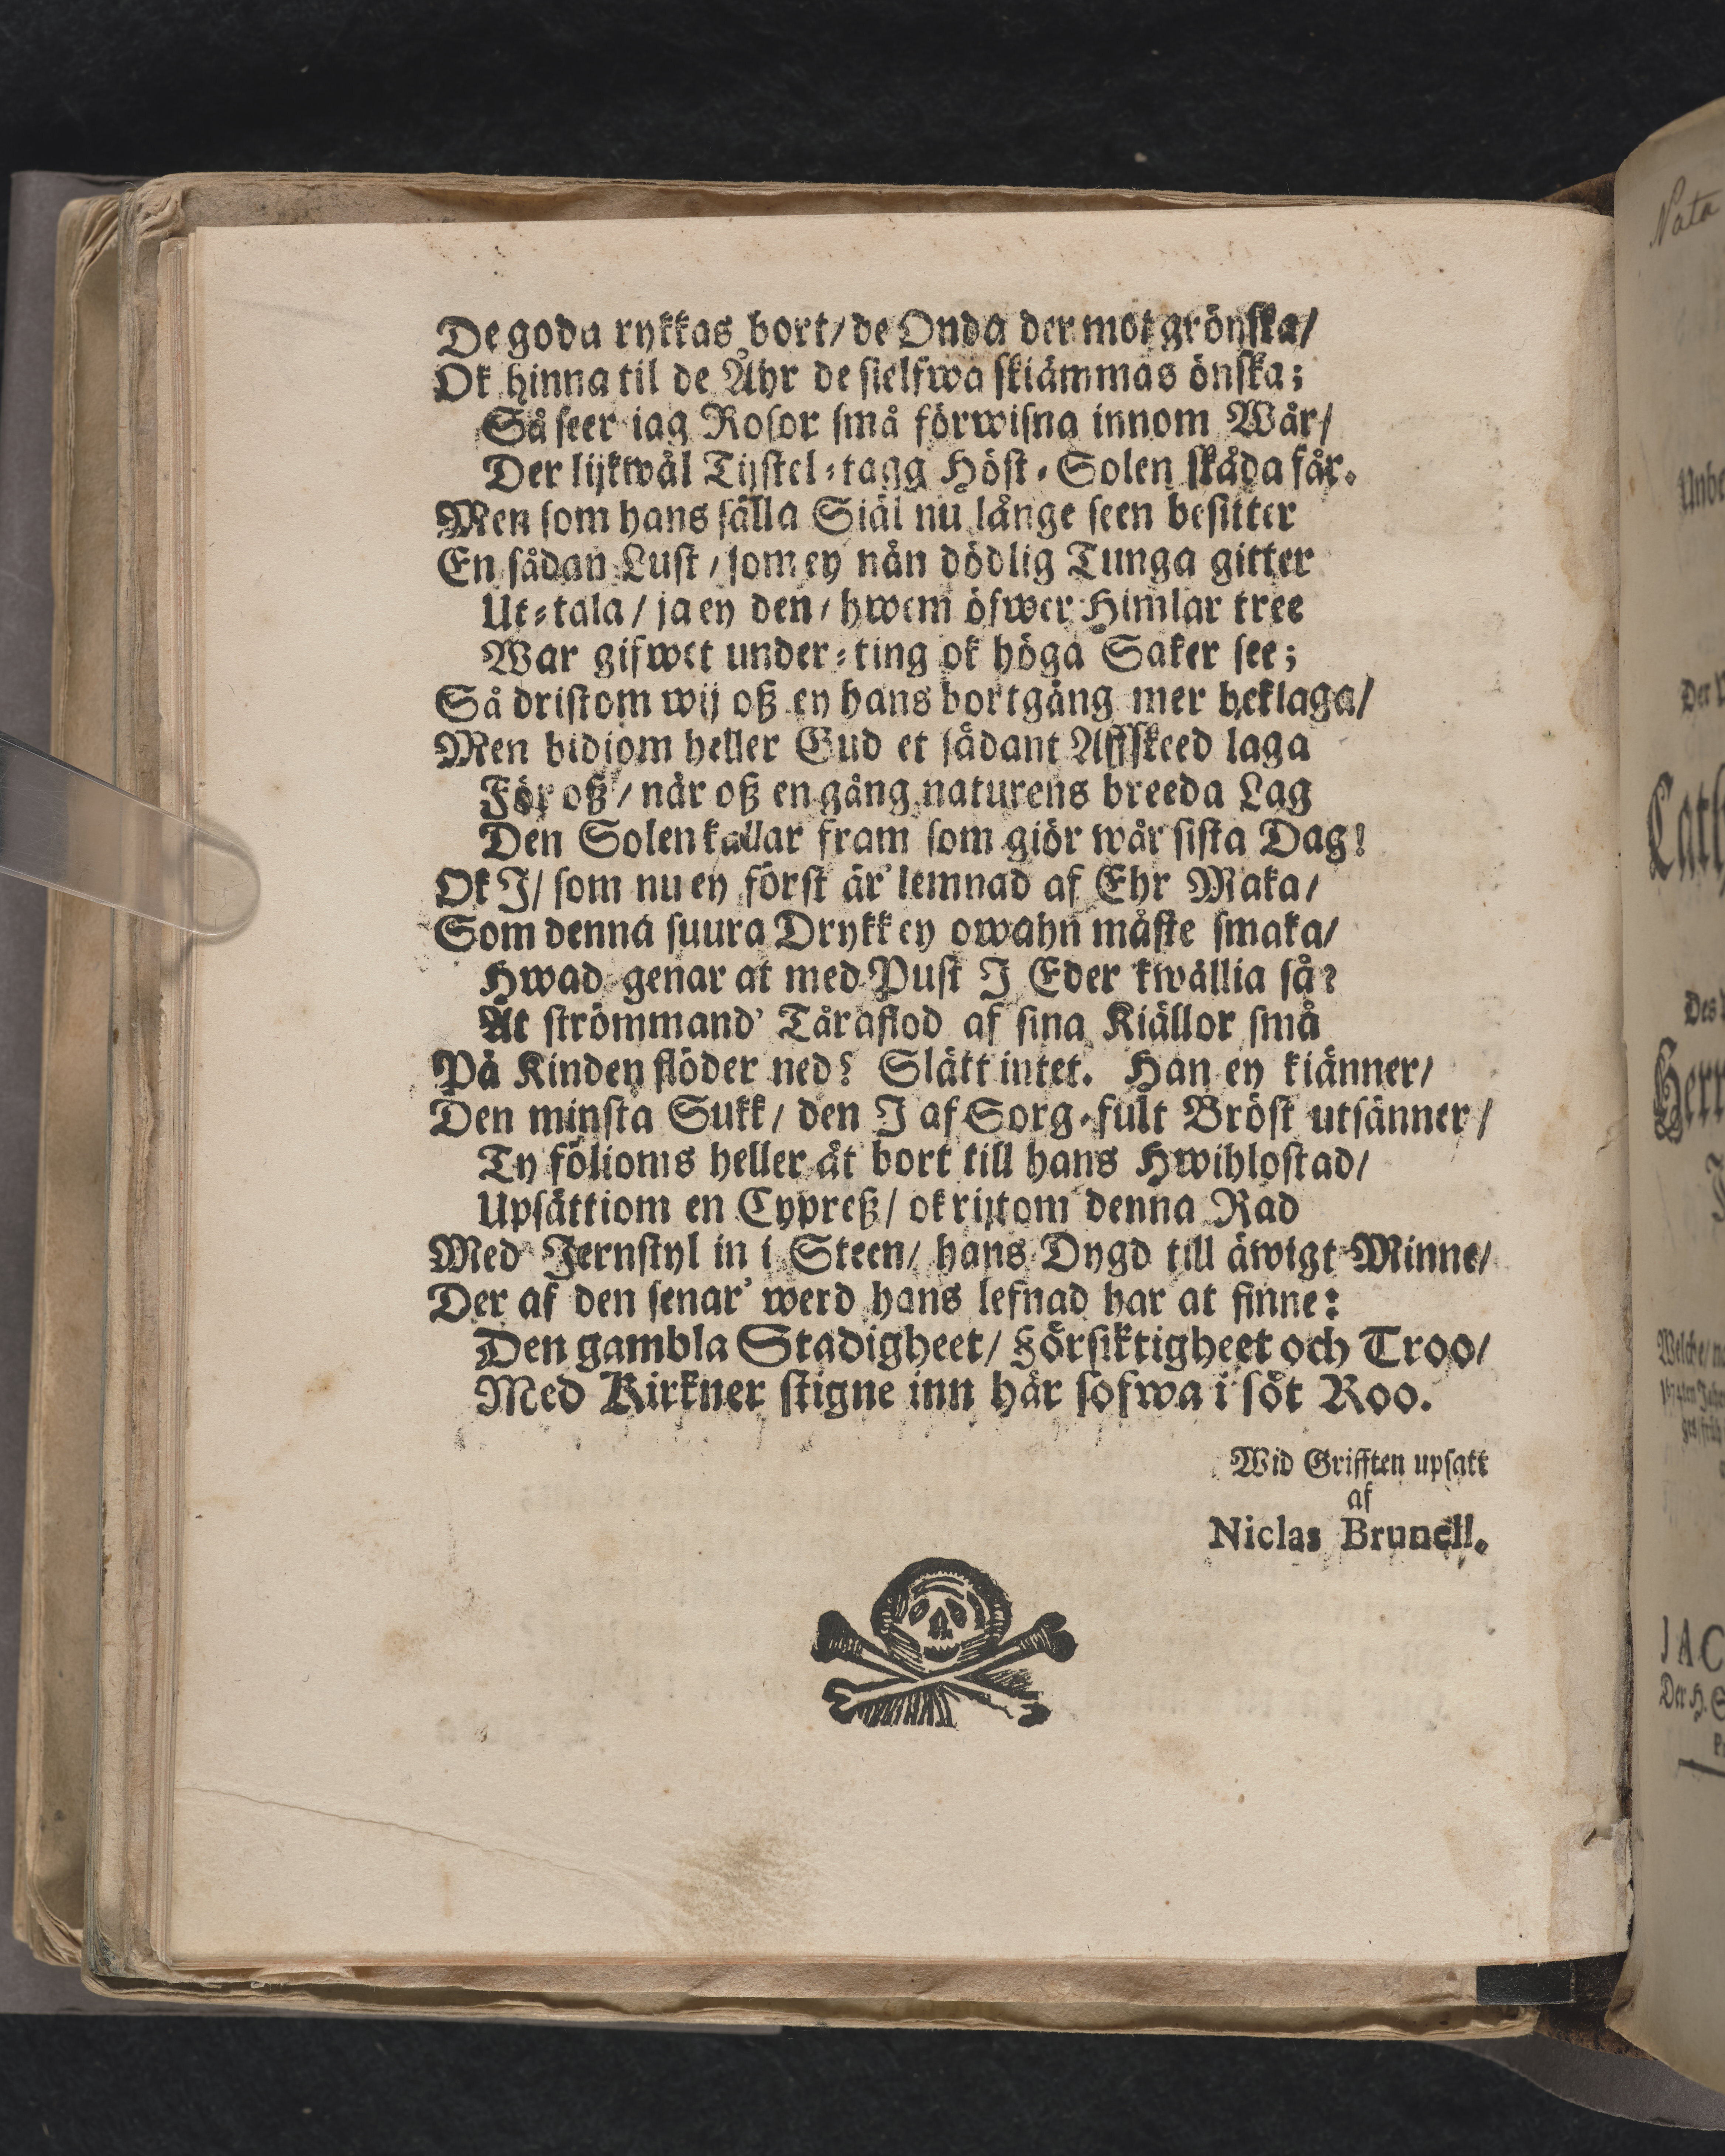 De goda rykkas bort/ de Onda der mot grönska/
Ok hinna til de Åhr de sielfwa skiämmas önska;
Så seer iag Rosor små förwisna innom Wår/
Der lijkwål Tijstel-tagg Höst-Solen skåda får.
Men som hans sälla Siäl nu långe seen besitter
En sådan Lust/ som ey nån dödlig Tunga gitter
Ut-tala/ ja ey den/ hwem öfwer Himlar tree
War gifwet under-ting ok höga Saker see;
Så dristom wij oß ey hans bortgång mer beklaga/
Men bidiom heller Gud et sådant Affskeed laga
För oß/ når oß en gång naturens breeda Lag
Den Solen kallar fram som giör wår sista Dag!
Ok J/ som nu ey först är' lemnad af Ehr Maka/
Som denna suura Drykk ey owahn måste smaka/
Hwad genar at med Pust J Eder kwållia så?
At strömmand' Tåraflod af sina Kiållor små
På Kinden flöder ned? Slått intet. Han ey kiånner/
Den minsta Sukk/ den J af Sorg-fult Bröst utsånner/
Ty fölioms heller åt bort till hans Hwihlostad/
Upsättiom en Cypreß/ ok rijtom denna Rad
Med Jernstyl in i Steen/ hans Dygd till äwigt Minne/
Der af den senar' werd hans lefnad har at finne:
Den gambla Stadigheet/ Försiktigheet och Troo/
Med Kirkner stigne inn hår sofwa i söt Roo.
Wid Grifften upsatt
af
Niclas Brunell.
Nata
Der
Des
Herr
Welche/
JAC
Der H. S